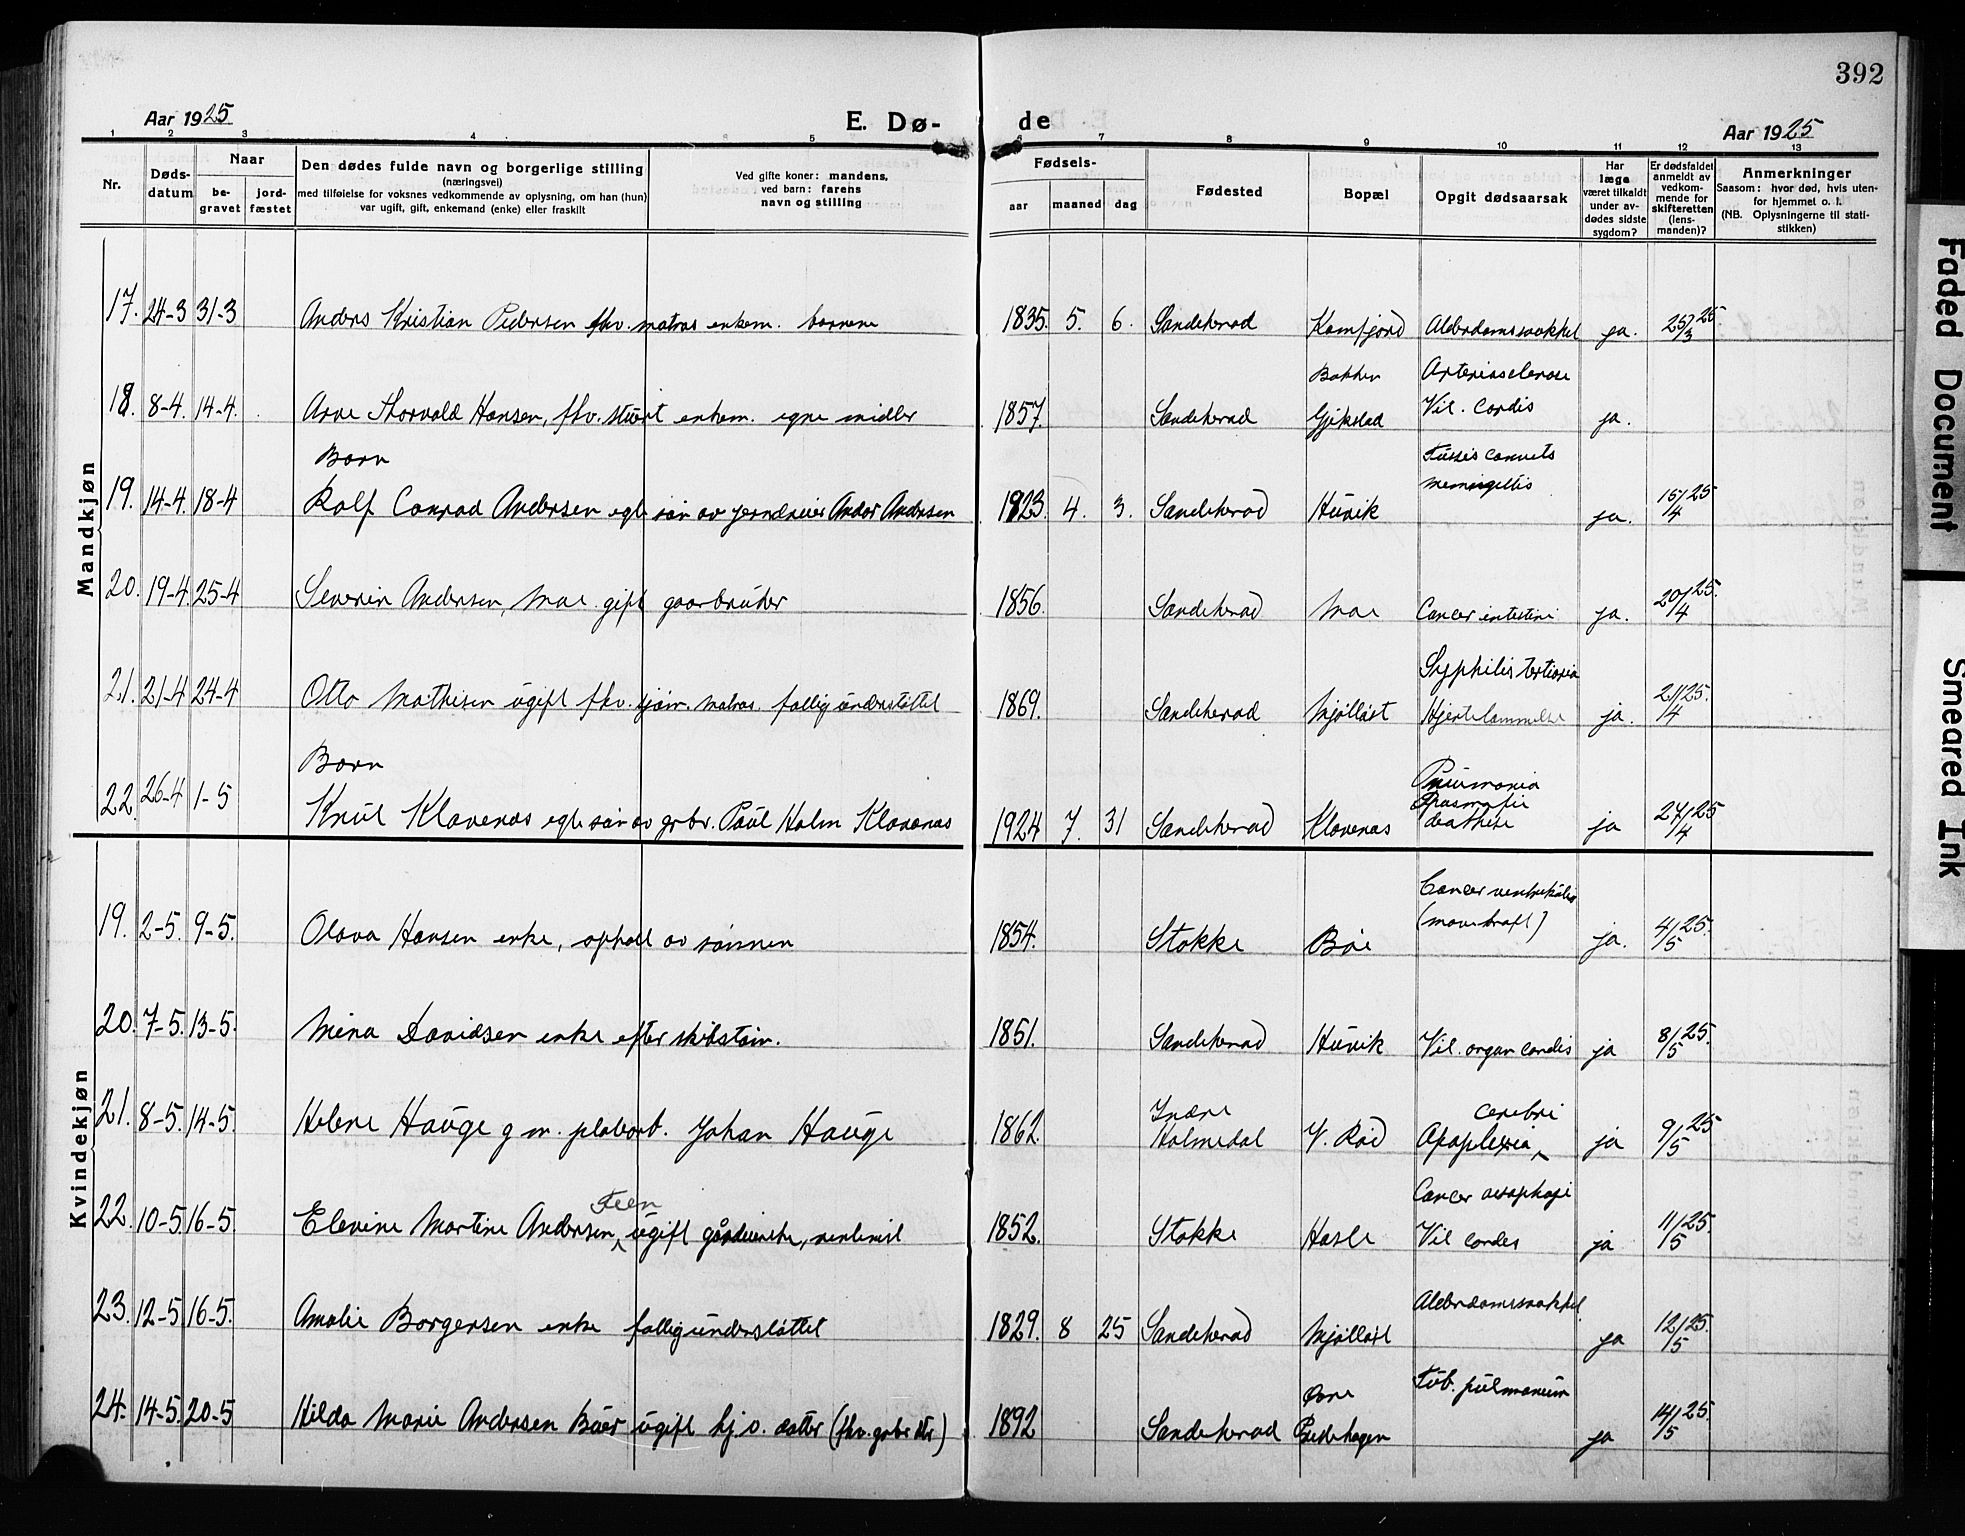 392
Aar 1925
E. Dø-
de
Aar 1925
1 2 3 4 5 6 7 8 9 10 11 12 13
Nr.
Døds-
datum
Naar
be-
gravet
jord-
fæstet
Den dødes fulde navn og borgerlige stilling
(næringsvei)
med tilføielse for voksnes vedkommende av oplysning, om han (hun)
var ugift, gift, enkemand (enke) eller fraskilt
Ved gifte koner: mandens,
ved barn: farens
navn og stilling
Fødsels-
aar
maaned
dag
Fødested
Bopæl
Opgit dødsaarsak
Har
læge
været tilkaldt
under av-
dødes sidste
sygdom?
Er dødsfaldet
anmeldt av
vedkom-
mende for
skifteretten
(lens-
manden)?
Anmerkninger
Saasom: hvor død, hvis uten-
for hjemmet o. l.
(NB. Oplysningerne til stati-
stikken)
Mandkjøn
17. 24-3 31-3 Anders Kristian Pedersen fhv. matros enkem. barnene 1835. 5. 6. Sandeherad Kamfjord Alderdomssvakkel ja. 25/3 25
Bakken Arteriosclerose
18. 8-4. 14-4. Arve Thorvald Hansen, fhv. stuert enkem. egne midler 1857. Sandeherad Gjekstad Vit. Cordis ja.
Barn Tussis convuls
meningitis
19. 14-4. 18-4 Rolf Conrad Andersen egte søn av Andor Andersen 1923. 4. 3. Sandeherad Huvik ja. 15/4 25
20. 19-4. 25-4 Severin Andersen, Moe gift gaarbruker 1856. Sandeherad Moe Cancer intestini ja. 20/4 25.
Syphilis tertiaria
21. 21-4 24-4 Otto Mathisen ugift fhv. sjøm. matros. fattigunderstøttet 1869. Sandeherad Mjølløst Hjertelammelse ja. 21/4 25.
Barn Pneumonia
22. 26-4 1-5 Knut Klavenæs egte søn av grbr. Paul Holm Klavenæs 1924 7. 31 Sandeherad Klavenæs ja 27/4 25
Kvindekjøn
Cancer ventriculi
(mavekraft)
19. 2-5. 9-5. Olava Hansen enke, ophold av sønnen 1854. Stokke Bøe ja. 4/5 25.
20. 7-5. 13-5. Mina Davidsen enke efter skibstøm. 1851. Sandeherad Huvik Vit. organ cordis ja 8/5 25.
Indre cerebri
21. 8-5. 14-5. Helene Hauge g m. Johan Hauge 1862. Holmedal V. Rød Apoplexia ja 9/5 25
Feen Cancer oesophagi
22. 10-5. 16-5. Elevine Martine Andersen, ugift 1852. Stokke Hasle Vit cordis ja 11/5 25.
Alderdomssvakkel.
23. 12-5 16-5. Amalie Borgersen enke fattigunderstøttet 1829. 8 25 Sandeherad Mjølløst ja 12/5 25.
Øvre Tub. pulmonum
24. 14-5. 20-5 Hilda Marie Andersen Bøer ugift hj. v. datter (fhv. grbr dtr) 1892 Sandeherad Breidehagen ja 14/5 25.
Faded Document
Smeared Ink